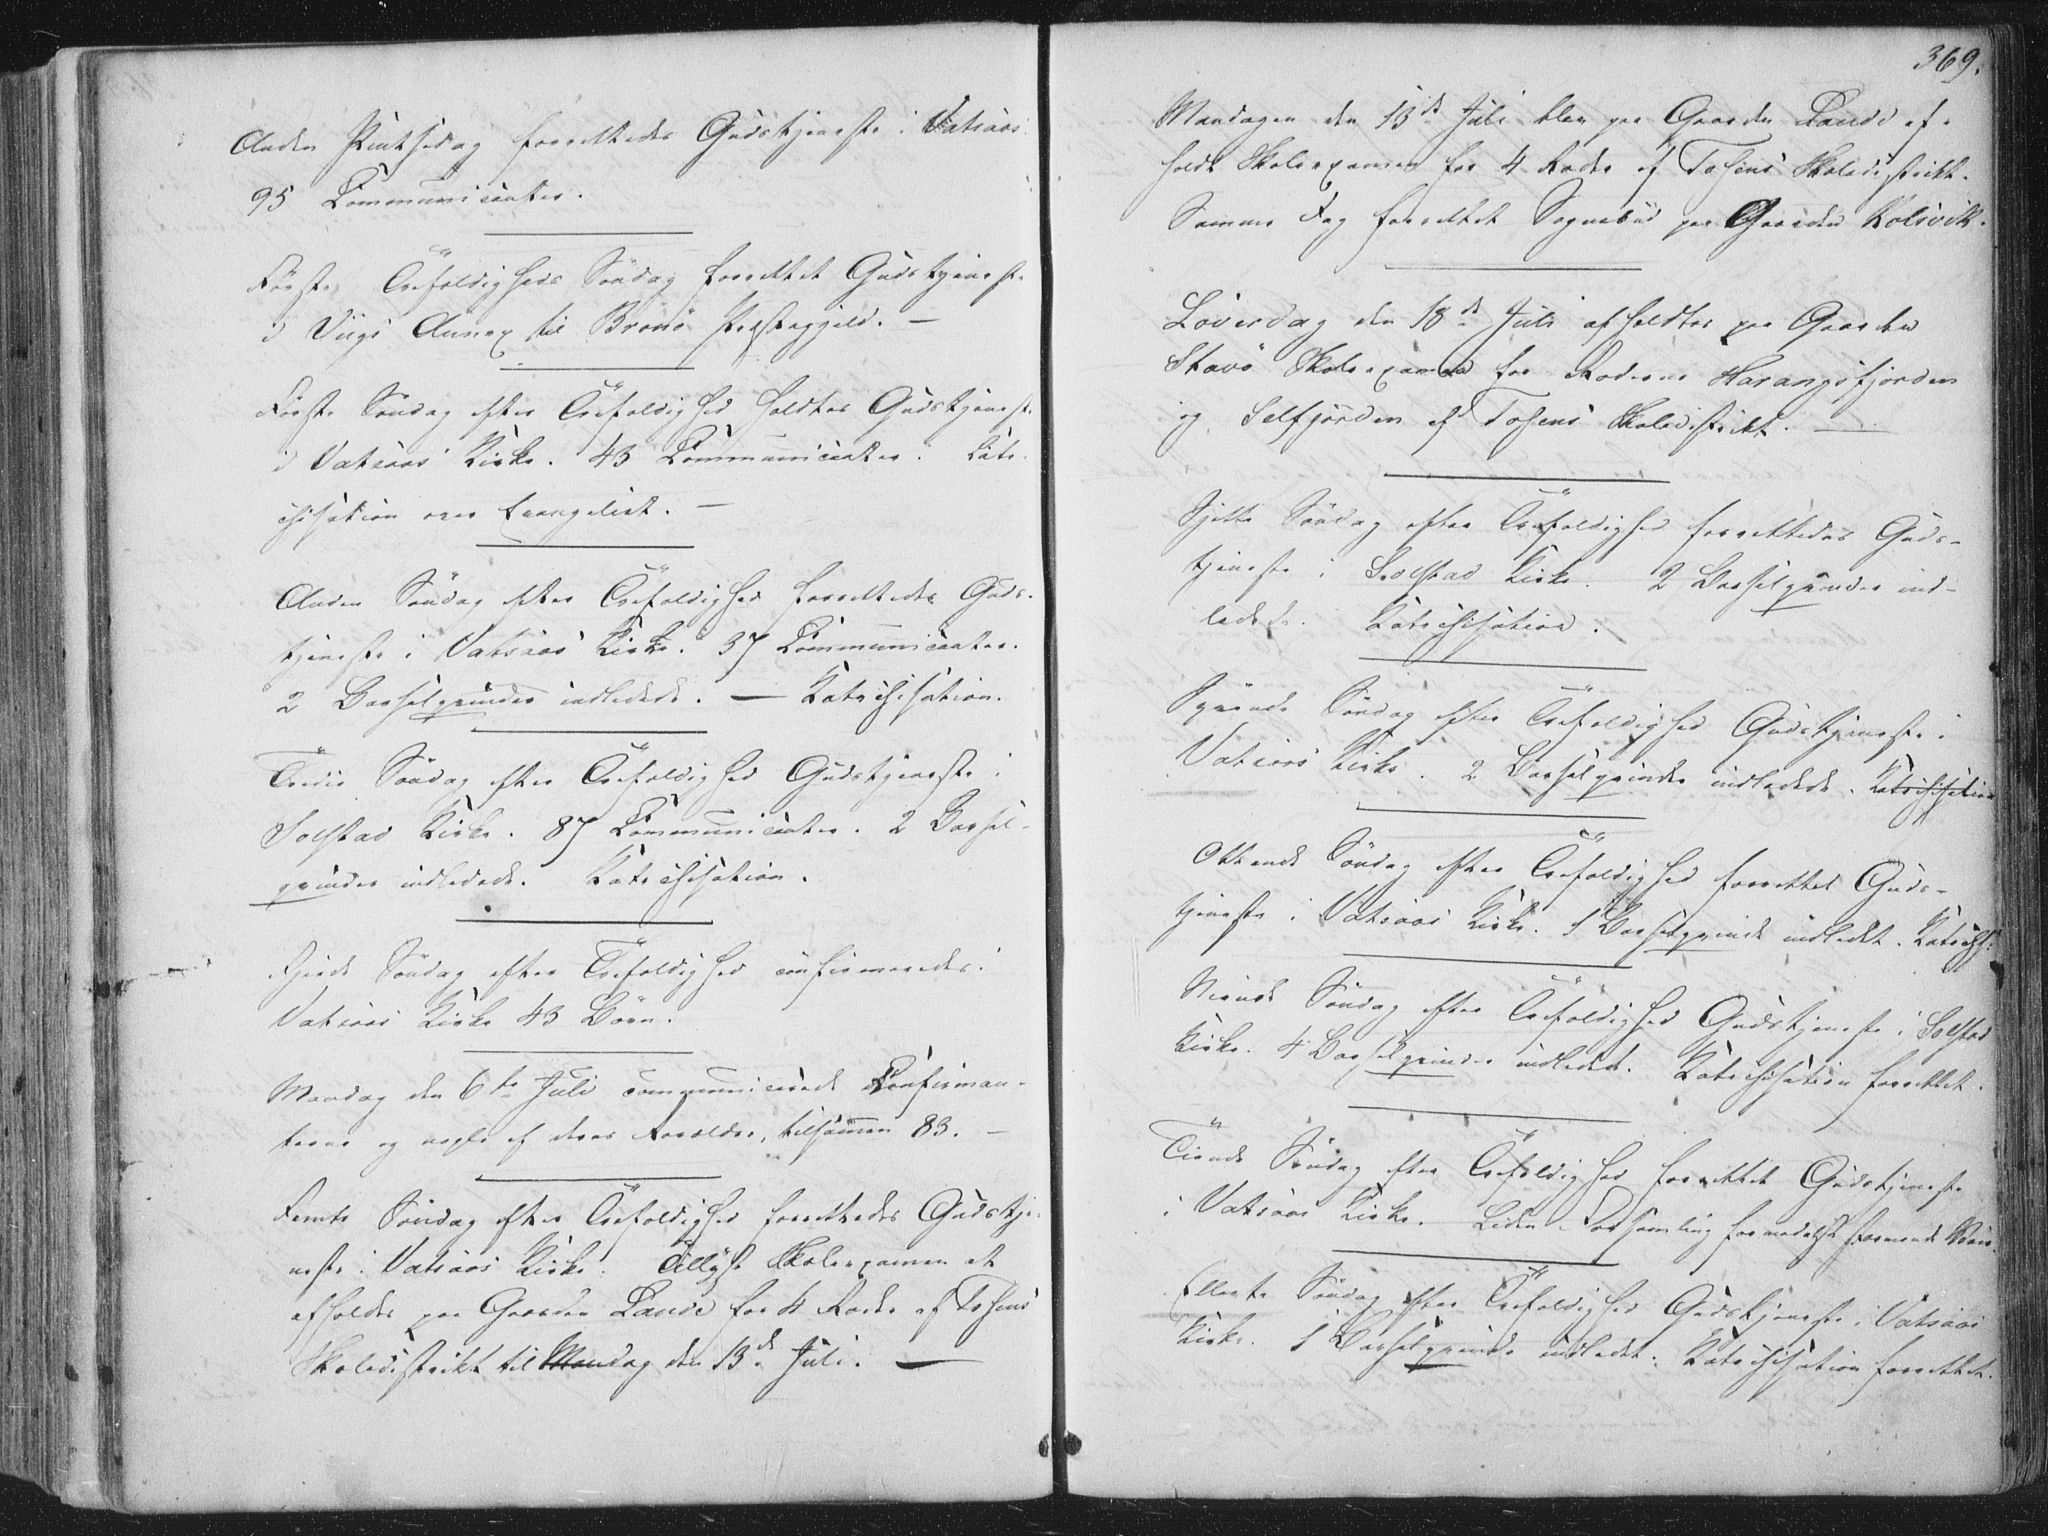 Anden Pintsedag forrettedes Gudstjeneste i Vatsaas
95 Communicanter.
Første Trefoldigheds Söndag forrettet Gudstjeneste
i Viigs Annex til Brönö Præstegjeld. —
Første Søndag efter Trefoldighed holdtes Gudstjenest
i Vatsaas Kirke. 43 Communicanter. Kate-
chisation over Evangeliet. —
Anden Söndag efter Trefoldighed forrettedes Guds-
tjeneste i Vatsaas Kirke. 37 Communicanter.
2 Barselqvinder indledede. — Katechisation.
Tredie Søndag efter Trefoldighed Gudstjeneste i
Solstad Kirke. 87 Communicanter. 2 Barsel-
qvinder indledede. Katechisation.
Fjerde Søndag efter Trefoldighed confirmeredes i
Vatsaas Kirke 43 Börn.
Mandag den 6te Juli communicerede Konfirman-
terne og nogle af deres Forældre, tilsammen 83. —
Femte Søndag efter Trefoldighed forrettedes Gudstje-
neste i Vatsaas Kirke. Tillyst Skoleexamen at
afholdes paa Gaarden Lande for 4 Roder af Tosens
Skoledistrikt til Mandag den 13de Juli. —
369.
Mandagen den 13de Juli blev paa Gaarden Lande af-
holdt Skoleexamen for 4 Roder af Tosens Skoledistrikt.
Samme Dag forrettet Sognebud paa Gaarden Kolsvik.
Löverdag den 18de Juli afholdtes paa Gaarden
Stavö Skoleexamen for Roderne Harangsfjorden
og Selfjorden af Tosens Skoledistrikt. —
Sjette Söndag efter Trefoldighed forrettedes Guds-
tjeneste i Solstad Kirke. 2 Barselqvinder ind-
ledede. Katechisation.
Syvende Søndag efter Trefoldighed Gudstjeneste i
Vatsaas Kirke. 2 Barselqvinder indledede. Katechisation
Ottende Söndag efter Trefoldighed forrettet Guds-
tjeneste i Vatsaas Kirke. 1 Barselqvinde indledet. Katechis:
Niende Søndag efter Trefoldighed Gudstjeneste i Solstad
Kirke. 4 Barselqvinder indledede. Katechisation forrettet.
Tiende Søndag efter Trefoldighed forrettet Gudstjeneste
i Vatsaas Kirke. Liden Forsamling formedelst stormende Veir.
Ellevte Söndag efter Trefoldighed Gudstjeneste i Vatsaas
Kirke. 1 Barselqvinde indledet. Katechisation forrettet.